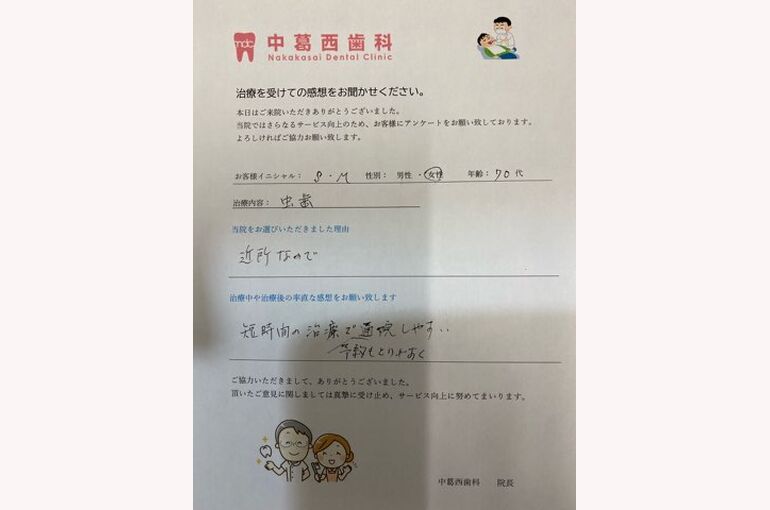 mdc
中葛西歯科
Nakakasai Dental Clinic
治療を受けての感想をお聞かせください。
本日はご来院いただきありがとうございました。
当院ではさらなるサービス向上のため、お客様にアンケートをお願い致しております。
よろしければご協力お願い致します。
お客様イニシャル： S・M 性別： 男性・女性 年齢：70代
治療内容： 虫歯
当院をお選びいただきました理由
近所なので
治療中や治療後の率直な感想をお願い致します
短時間の治療で通院しやすい
予約もとりやすく
ご協力いただきまして、ありがとうございました。
頂いたご意見に関しましては真摯に受け止め、サービス向上に努めてまいります。
中葛西歯科 院長